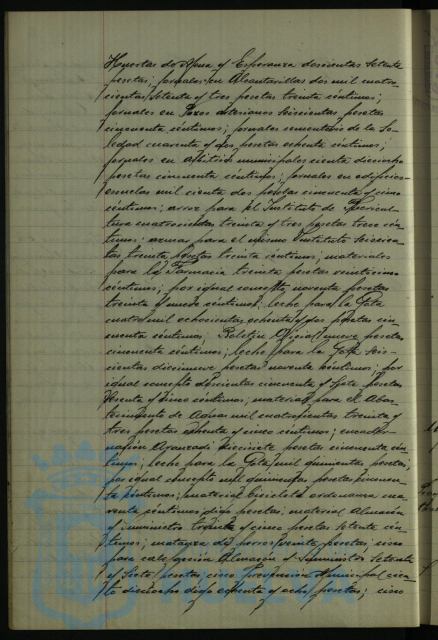 Huertas de Mena y Esperanza doscientas setenta
pesetas; jornales en Alcantarillas dos mil cuatro-
cientas setenta y tres pesetas treinta céntimos;
jornales en Pozos Artesianos seiscientas pesetas
cincuenta céntimos; jornales cementerio de la So-
ledad cuarenta y dos pesetas ochenta céntimos;
jornales en arbitrios municipales ciento dieciocho
pesetas cincuenta céntimos; jornales en edificios
escuelas mil ciento dos pesetas cincuenta y cinco
céntimos; arroz para el Instituto de Puericul-
tura cuatrocientas treinta y tres pesetas trece cén-
timos; azucar para el mismo Instituto seiscien-
tas treinta pesetas treinta céntimos; materiales
para la Farmacia treinta pesetas veinticinco
céntimos; por igual concepto noventa pesetas
treinta y nueve céntimos; leche para la Gota
cuatro mil ochocientas ochenta y dos pesetas cin-
cuenta céntimos; Boletín Oficial nueve pesetas
cincuenta céntimos; leche para la Gota seis-
cientas diecinueve pesetas noventa céntimos; por
igual concepto doscientas cincuenta y siete pesetas
sesenta y cinco céntimos; material para el Abas-
tecimiento de Aguas mil cuatrocientas treinta y
tres pesetas ochenta y cinco céntimos; encuader-
nación Aranzadi diecisiete pesetas cincuenta cén-
timos; leche para la Gota mil quinientas pesetas;
por igual concepto mil quinientas pesetas cincuen-
ta céntimos; material bicicleta ordenanza cua-
renta céntimos digo pesetas; material Almacén
y suministro treinta y cinco pesetas setenta cén-
timos; matanza de perros veinte pesetas; cisco
para calefacción Almacén y Suministros setenta
y siete pesetas; cisco Prevención Municipal cien-
to dieciocho digo ochenta y ocho pesetas; cisco